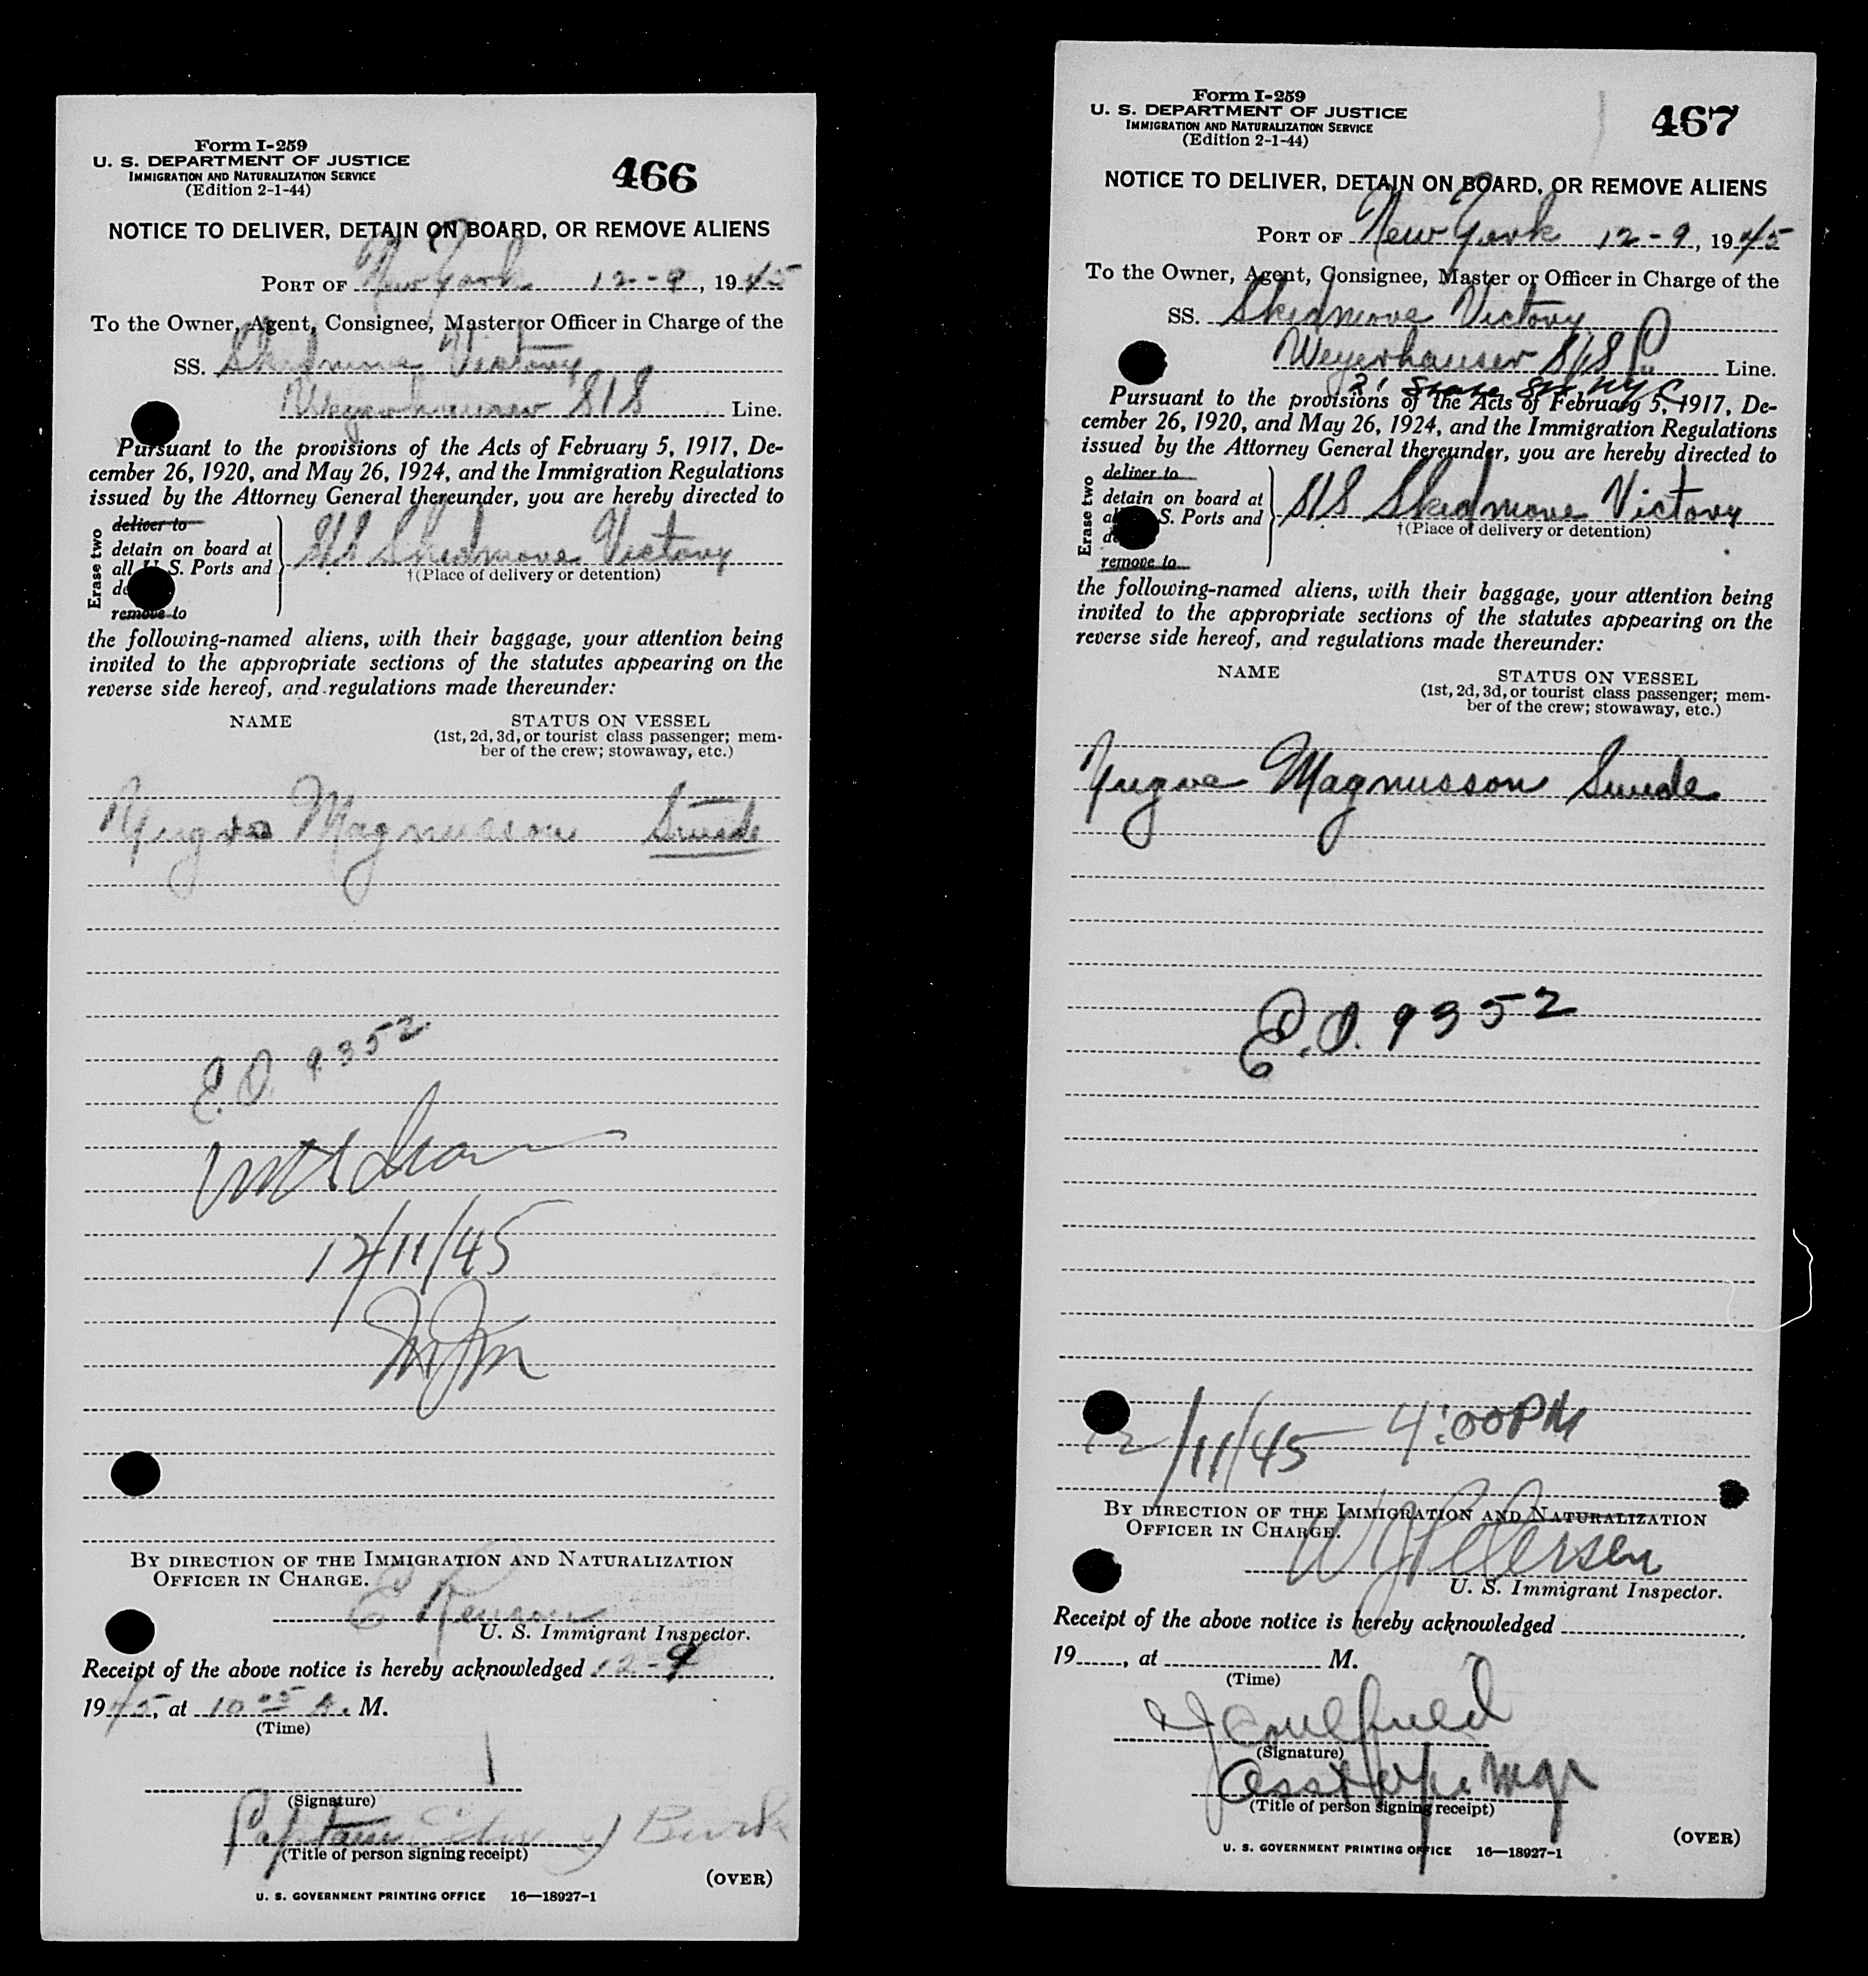 Form I-259
U. S. DEPARTMENT OF JUSTICE
IMMIGRATION AND NATURALIZATION SERVICE
(Edition 2-1-44)
466
NOTICE TO DELIVER, DETAIN ON BOARD, OR REMOVE ALIENS
PORT OF New York 12-9, 1945
To the Owner, Agent, Consignee, Master or Officer in Charge of the
SS. Skidmore Victory
Weyerhauser S/S Line.
Pursuant to the provisions of the Acts of February 5, 1917, De-
cember 26, 1920, and May 26, 1924, and the Immigration Regulations
issued by the Attorney General thereunder, you are hereby directed to
Erase two
deliver to
detain on board at
all U. S. Ports and
remove to
S/S Skidmore Victory
†(Place of delivery or detention)
the following-named aliens, with their baggage, your attention being
invited to the appropriate sections of the statutes appearing on the
reverse side hereof, and regulations made thereunder:
NAME
STATUS ON VESSEL
(1st, 2d, 3d, or tourist class passenger; mem-
ber of the crew; stowaway, etc.)
Yngve Magnusson Swede
E.O. 9352
12/11/45
BY DIRECTION OF THE IMMIGRATION AND NATURALIZATION
OFFICER IN CHARGE.
U. S. Immigrant Inspector.
Receipt of the above notice is hereby acknowledged 12-9,
1945, at 10 05 A. M.
(Time)
(Signature)
Captain
(Title of person signing receipt)
(OVER)
U. S. GOVERNMENT PRINTING OFFICE 16—18927-1
Form I-259
U. S. DEPARTMENT OF JUSTICE
IMMIGRATION AND NATURALIZATION SERVICE
(Edition 2-1-44)
467
NOTICE TO DELIVER, DETAIN ON BOARD, OR REMOVE ALIENS
PORT OF New York 12-9, 1945
To the Owner, Agent, Consignee, Master or Officer in Charge of the
SS. Skidmore Victory
Weyerhauser S/S Line.
21 State St. NYC
Pursuant to the provisions of the Acts of February 5, 1917, De-
cember 26, 1920, and May 26, 1924, and the Immigration Regulations
issued by the Attorney General thereunder, you are hereby directed to
Erase two
deliver to
detain on board at
S. Ports and
remove to
S/S Skidmore Victory
†(Place of delivery or detention)
the following-named aliens, with their baggage, your attention being
invited to the appropriate sections of the statutes appearing on the
reverse side hereof, and regulations made thereunder:
NAME
STATUS ON VESSEL
(1st, 2d, 3d, or tourist class passenger; mem-
ber of the crew; stowaway, etc.)
Yngve Magnusson Swede
E.O. 9352
12/11/45 4:00PM
BY DIRECTION OF THE IMMIGRATION AND NATURALIZATION
OFFICER IN CHARGE.
W J Petersen
U. S. Immigrant Inspector.
Receipt of the above notice is hereby acknowledged
19, at M.
(Time)
J Caulfield
(Signature)
Asst Op. Mgr
(Title of person signing receipt)
(OVER)
U. S. GOVERNMENT PRINTING OFFICE 16—18927-1